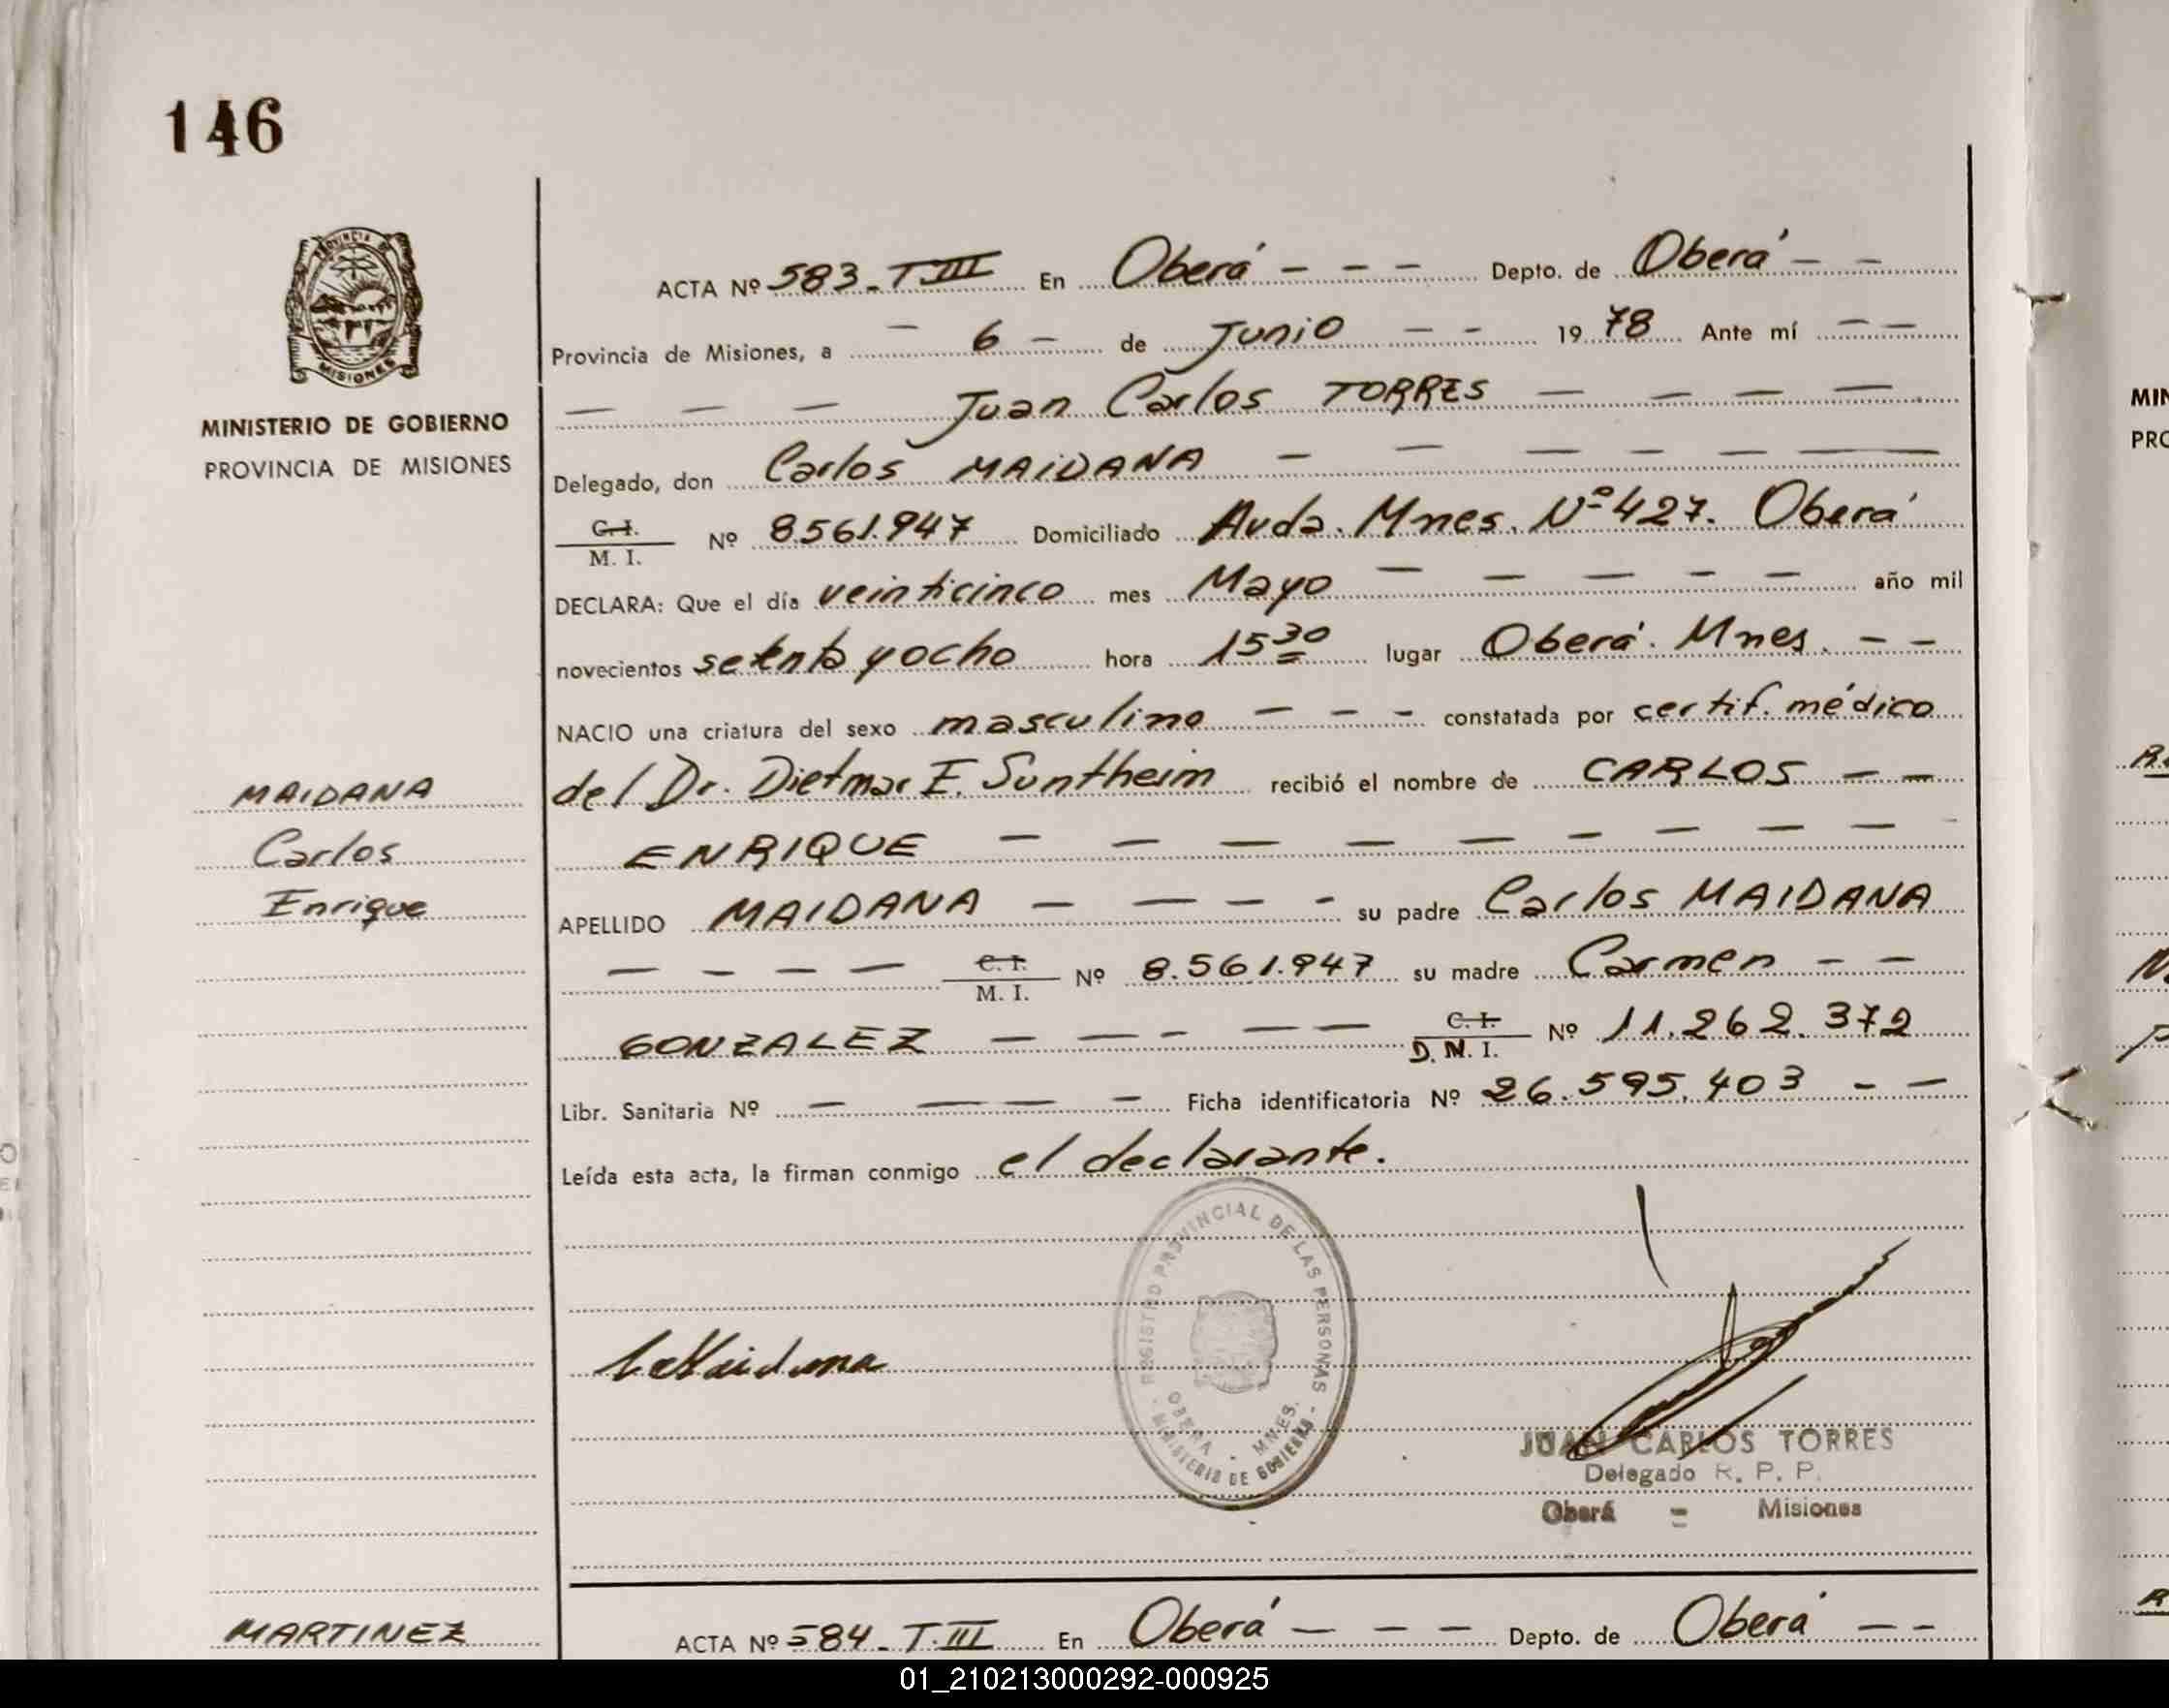 146
PROVINCIA DE
MISIONES
MINISTERIO DE GOBIERNO
PROVINCIA DE MISIONES
ACTA Nº 583-T III En Oberá - - - Depto. de Oberá - -
Provincia de Misiones, a - 6 - de Junio - - 1978 Ante mí - -
- - - Juan Carlos TORRES - - - -
Delegado, don Carlos MAIDANA - - - - - -
C.I.
M. I. Nº 8.561.947 Domiciliado Avda. Mnes. Nº 427. Oberá
DECLARA: Que el día veinticinco mes Mayo - - - - - año mil
novecientos setenta y ocho hora 15 30 lugar Oberá. Mnes. - -
NACIO una criatura del sexo masculino - - - constatada por certif. médico
del Dr. Dietmar E. Suntheim recibió el nombre de CARLOS - -
ENRIQUE - - - - - - - - -
APELLIDO MAIDANA - - - - su padre Carlos MAIDANA
- - - - C. I.
M. I. Nº 8.561.947 su madre Carmen - -
GONZALEZ - - - - - C. I.
D. N. I. Nº 11.262.372
Libr. Sanitaria Nº - - - - Ficha identificatoria Nº 26.595.403 - -
Leída esta acta, la firman conmigo el declarante.
MAIDANA
Carlos
Enrique
REGISTRO PROVINCIAL DE LAS PERSONAS -
OBERA - MNES.
MINISTERIO DE GOBIERNO
JUAN CARLOS TORRES
Delegado R. P. P.
Oberá - Misiones
MARTINEZ
ACTA Nº 584-T.III En Oberá - - - Depto. de Oberá - -
MIN
PRO
01_210213000292-000925